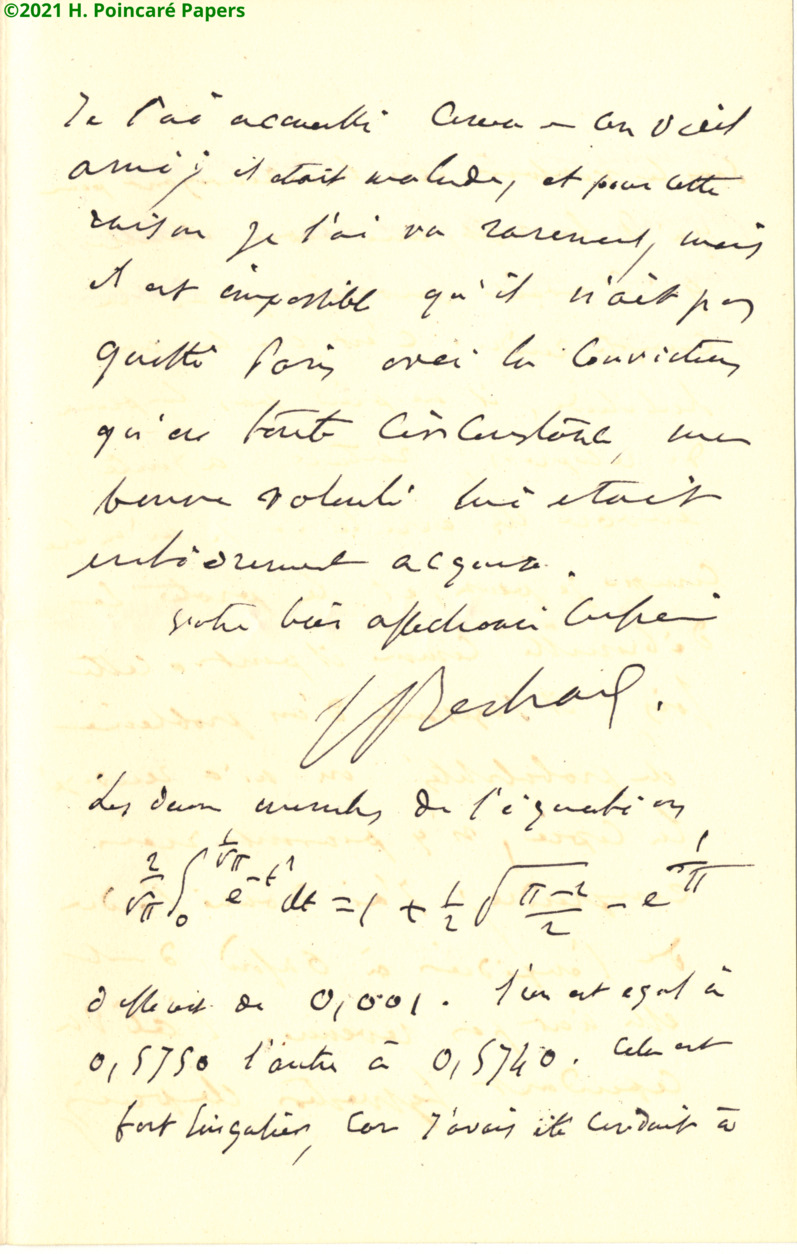 ©2021 H. Poincaré Papers
Je l'ai accueilli comme un vieil
ami; il était malade, et pour cette
raison je l'ai vu rarement, mais
il est impossible qu'il n'ait pas
quitté Paris avec la conviction
qu'en toute circonstance, ma
bonne volonté lui était
entièrement acquise.
Votre bien affectionné confrère
J Bertrand.
Les deux membres de l'équation
2/√π ∫₀^{1/√π} e^{-t²} dt = 1 + 1/2 √((π-2)/2) - e^{-1/π}
diffèrent de 0,001. l'un est egal à
0,5750 l'autre à 0,5740. Cela est
fort singulier, car j'avais été conduit à